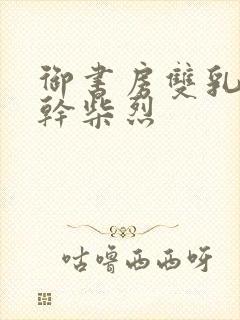 御書房雙乳
幹柴烈
咕嚕西西呀